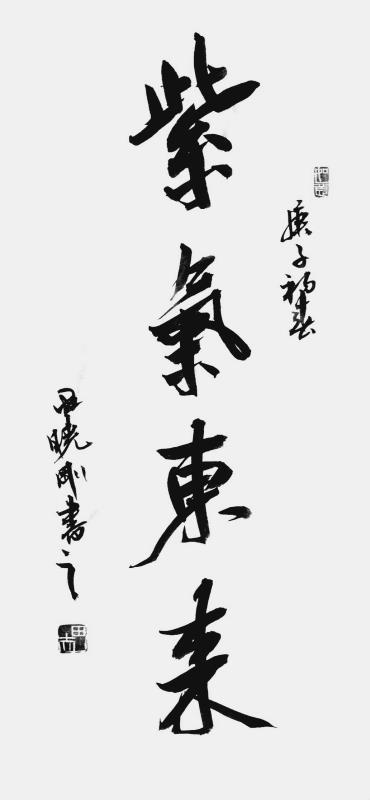 庚子初春
紫氣東来
田曉剛書之